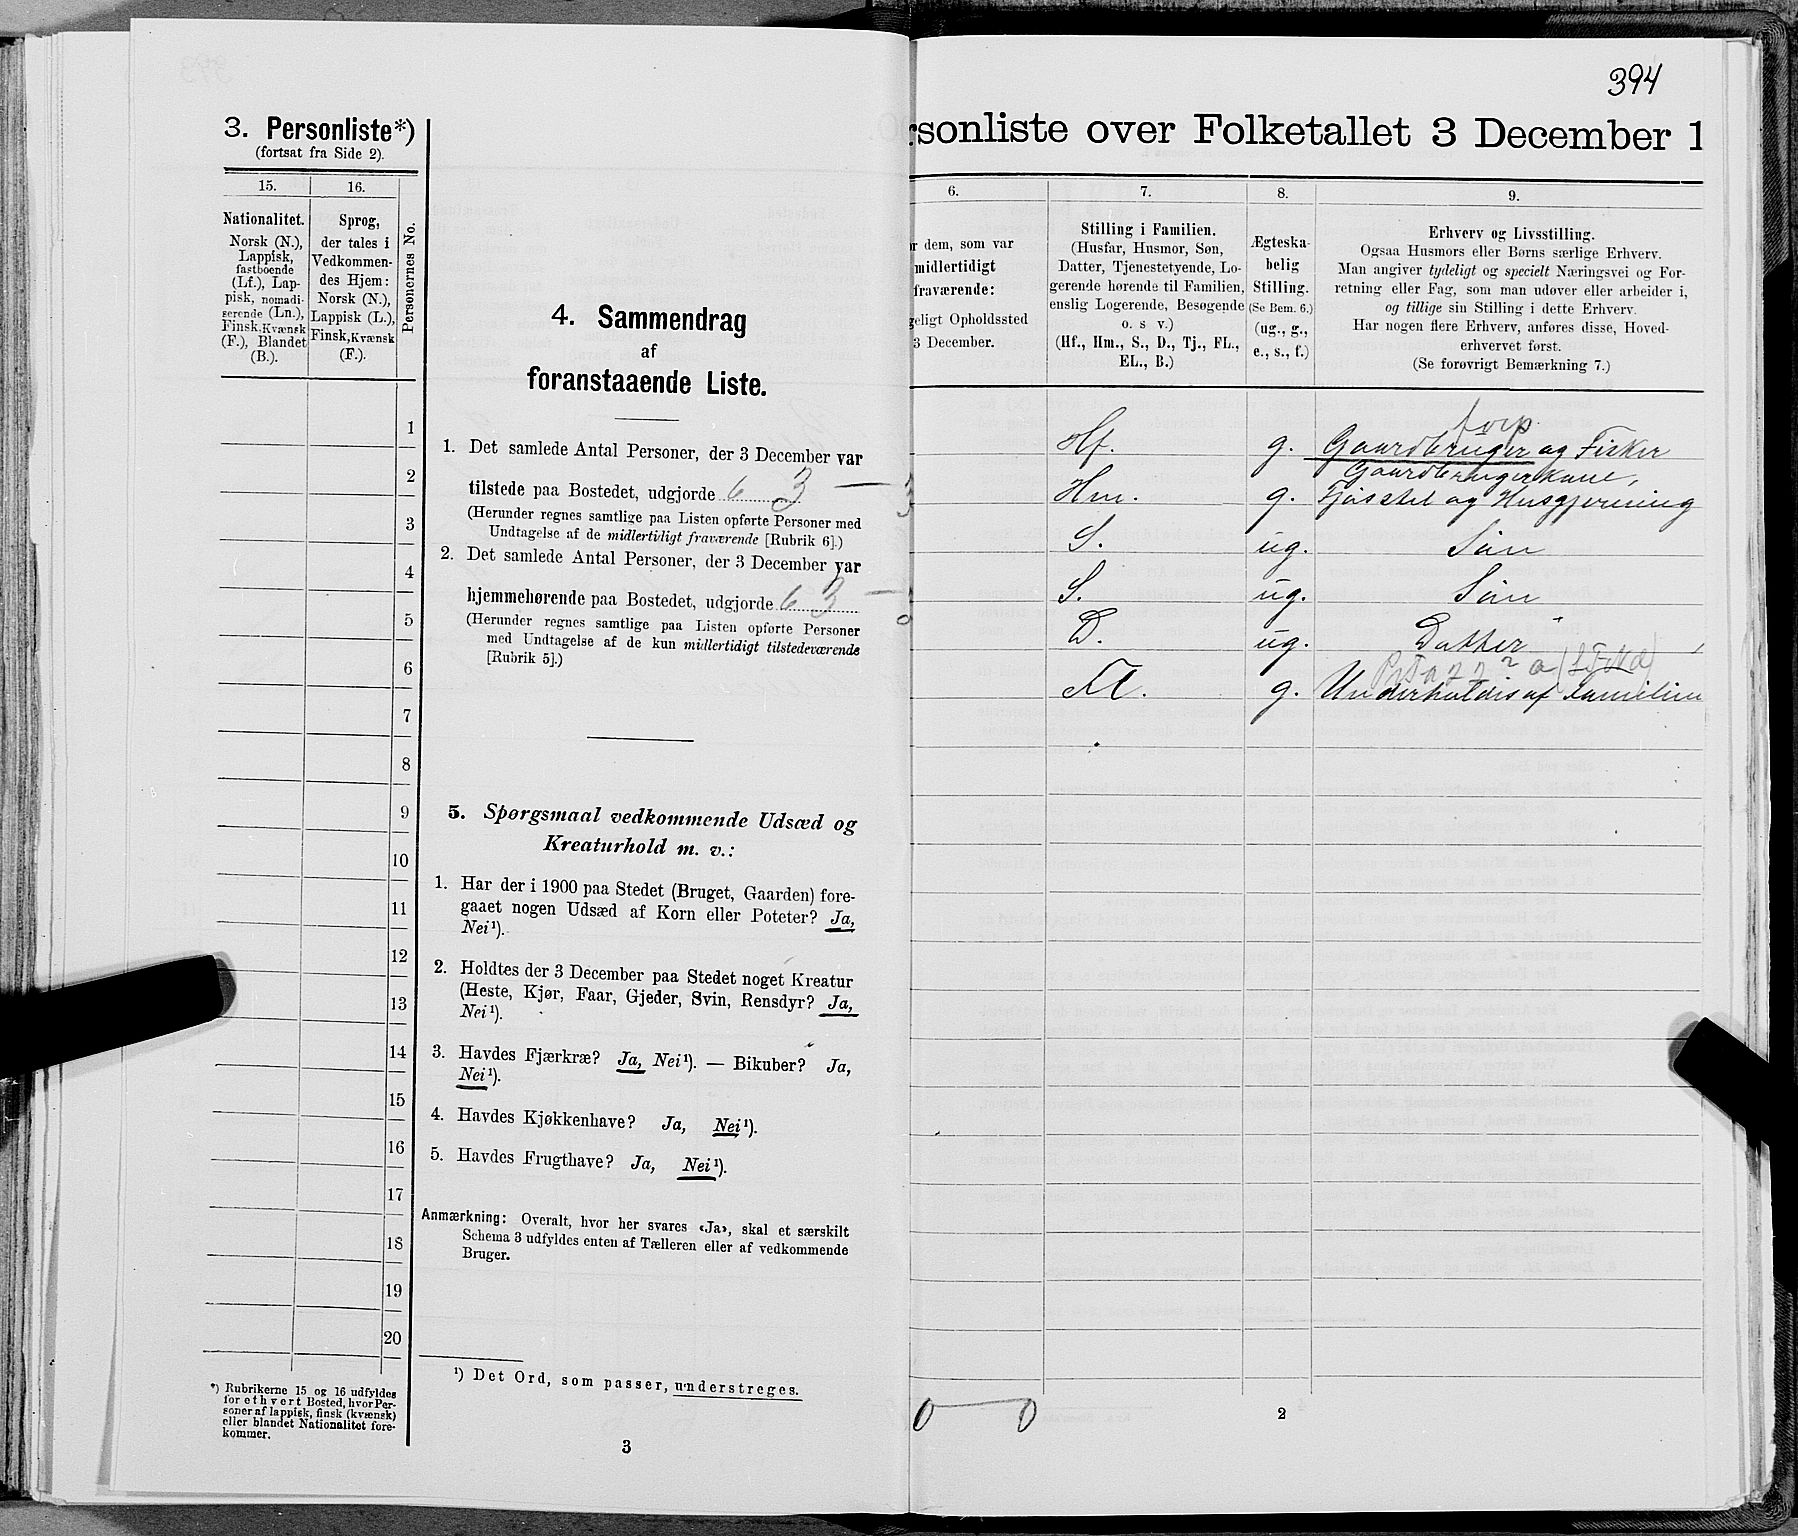 3. Personliste*)
(fortsat fra Side 2).
15.
16.
Nationalitet.
Norsk (N.),
Lappisk,
fastboende
(Lf.), Lap-
pisk, nomadi-
serende (Ln.),
Finsk, Kvænsk
(F.), Blandet
(B.).
Sprog,
der tales i
Vedkommen-
des Hjem:
Norsk (N.),
Lappisk (L.),
Finsk, Kvænsk
(F.).
Personernes No.
1
2
3
4
5
6
7
8
9
10
11
12
13
14
15
16
17
18
19
20
*) Rubrikerne 15 og 16 udfyldes
for ethvert Bosted, hvor Per-
soner af lappisk, finsk (kvænsk)
eller blandet Nationalitet fore-
kommer.
4. Sammendrag
af
foranstaaende Liste.
1. Det samlede Antal Personer, der 3 December var
tilstede paa Bostedet, udgjorde 6 3
(Herunder regnes samtlige paa Listen opførte Personer med
Undtagelse af de midlertidigt fraværende [Rubrik 6].)
2. Det samlede Antal Personer, der 3 December var
hjemmehørende paa Bostedet, udgjorde 6 3
(Herunder regnes samtlige paa Listen opførte Personer
med Undtagelse af de kun midlertidigt tilstedeværende
[Rubrik 5].)
5. Spørgsmaal vedkommende Udsæd og
Kreaturhold m. v.:
1. Har der i 1900 paa Stedet (Bruget, Gaarden) fore-
gaaet nogen Udsæd af Korn eller Poteter? Ja,
Nei¹).
2. Holdtes der 3 December paa Stedet noget Kreatur
(Heste, Kjør, Faar, Gjeder, Svin, Rensdyr? Ja,
Nei¹).
3. Havdes Fjærkræ? Ja, Nei¹). — Bikuber? Ja,
Nei¹).
4. Havdes Kjøkkenhave? Ja, Nei¹).
5. Havdes Frugthave? Ja, Nei¹).
Anmærkning: Overalt, hvor her svares «Ja», skal et særskilt
Schema 3 udfyldes enten af Tælleren eller af vedkommende
Bruger.
¹) Det Ord, som passer, understreges.
3
394
rsonliste over Folketallet 3 December 1
6.
r dem, som var
midlertidigt
fraværende:
geligt Opholdssted
3 December.
7.
Stilling i Familien.
(Husfar, Husmor, Søn,
Datter, Tjenestetyende, Lo-
gerende hørende til Familien,
enslig Logerende, Besøgende
o. s v.)
(Hf., Hm., S., D., Tj., FL.,
EL., B.)
8.
Ægteska-
belig
Stilling.
(Se Bem. 6.)
(ug., g.,
e., s., f.)
9.
Erhverv og Livsstilling.
Ogsaa Husmors eller Børns særlige Erhverv.
Man angiver tydeligt og specielt Næringsvei og For-
retning eller Fag, som man udøver eller arbeider i,
og tillige sin Stilling i dette Erhverv.
Har nogen flere Erhverv, anføres disse, Hoved-
erhvervet først.
(Se forøvrigt Bemærkning 7.)
forp.
Hf. g. Gaardbruger og Fisker
Gaardbrugerkone,
Hm. g. Fjøsstel og Husgjerning
S. ug. Søn
S. ug. Søn
D. ug. Datter
Fl. g. Underholdes af Familien
0 0
2